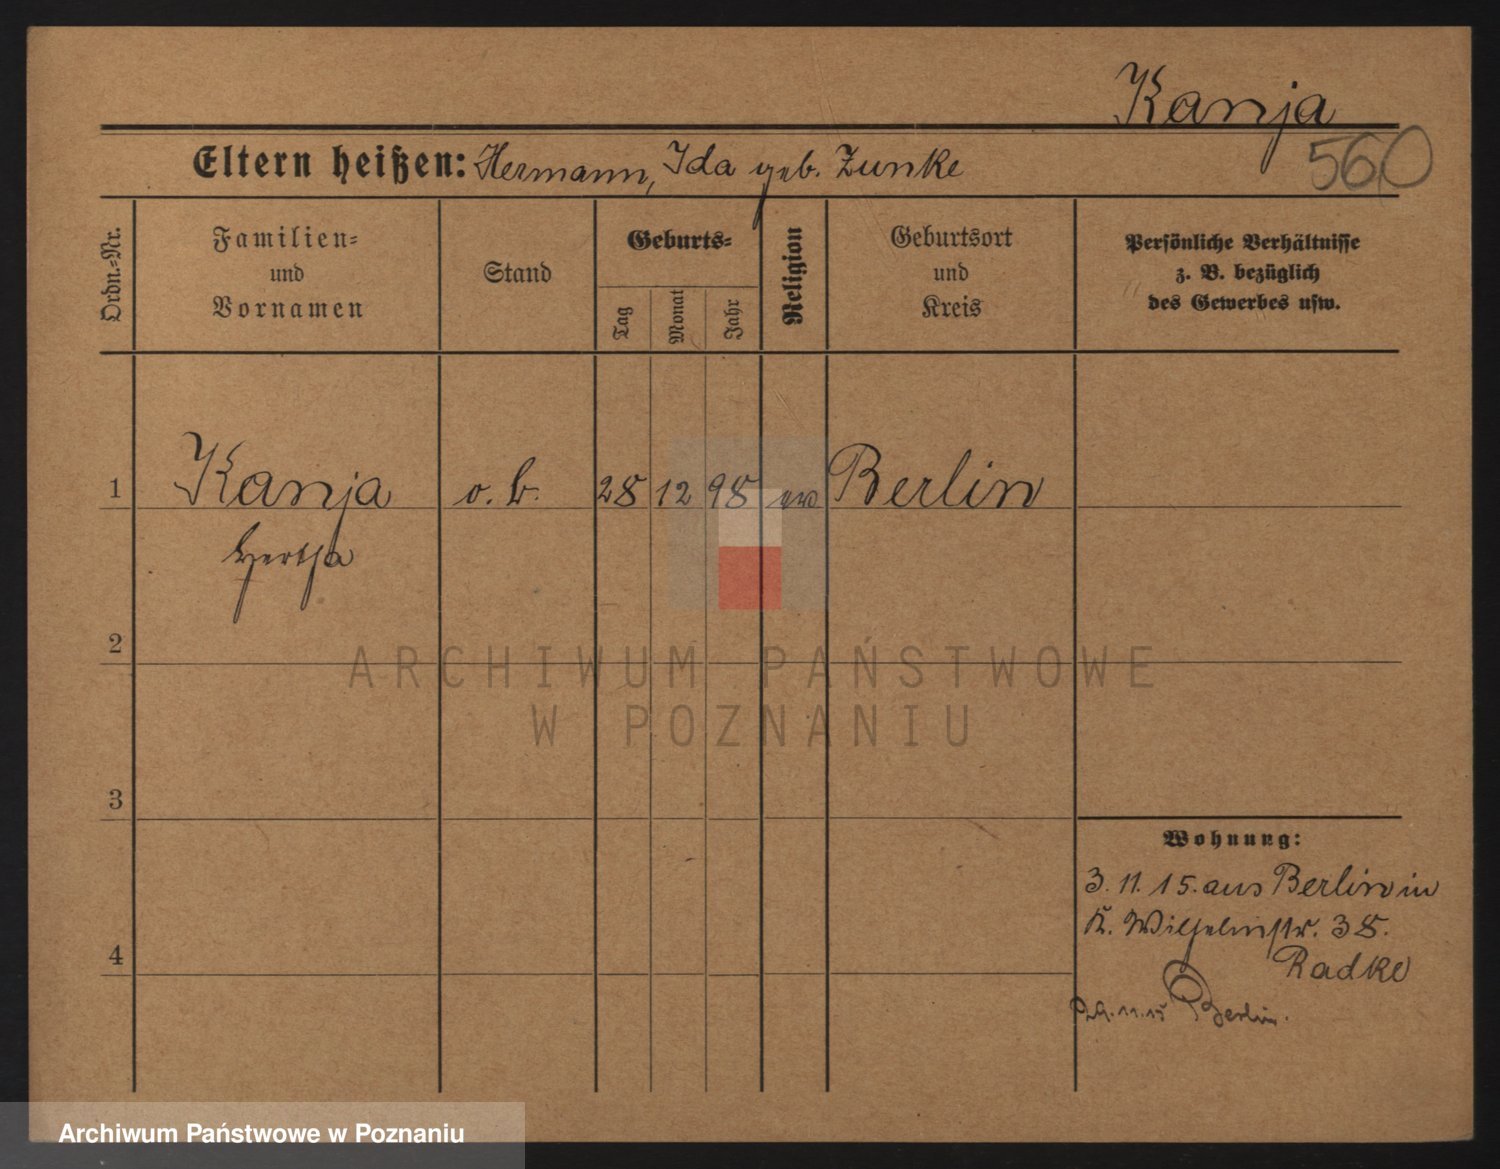 Kanja
560
Eltern heißen: Hermann, Ida geb. Zunke
Ordn.-Nr.
Familien-
und
Vornamen
Stand
Geburts-
Tag
Monat
Jahr
Religion
Geburtsort
und
Kreis
Persönliche Verhältnisse
z. B. bezüglich
des Gewerbes usw.
1
Kanja
o. b.
28
12
98
ev
Berlin
Hertha
2
ARCHIWUM PAŃSTWOWE
W POZNANIU
3
Wohnung:
3. 11. 15. aus Berlin in
K. Wilhelmstr. 38.
Radke
4
11.15 Berlin.
Archiwum Państwowe w Poznaniu